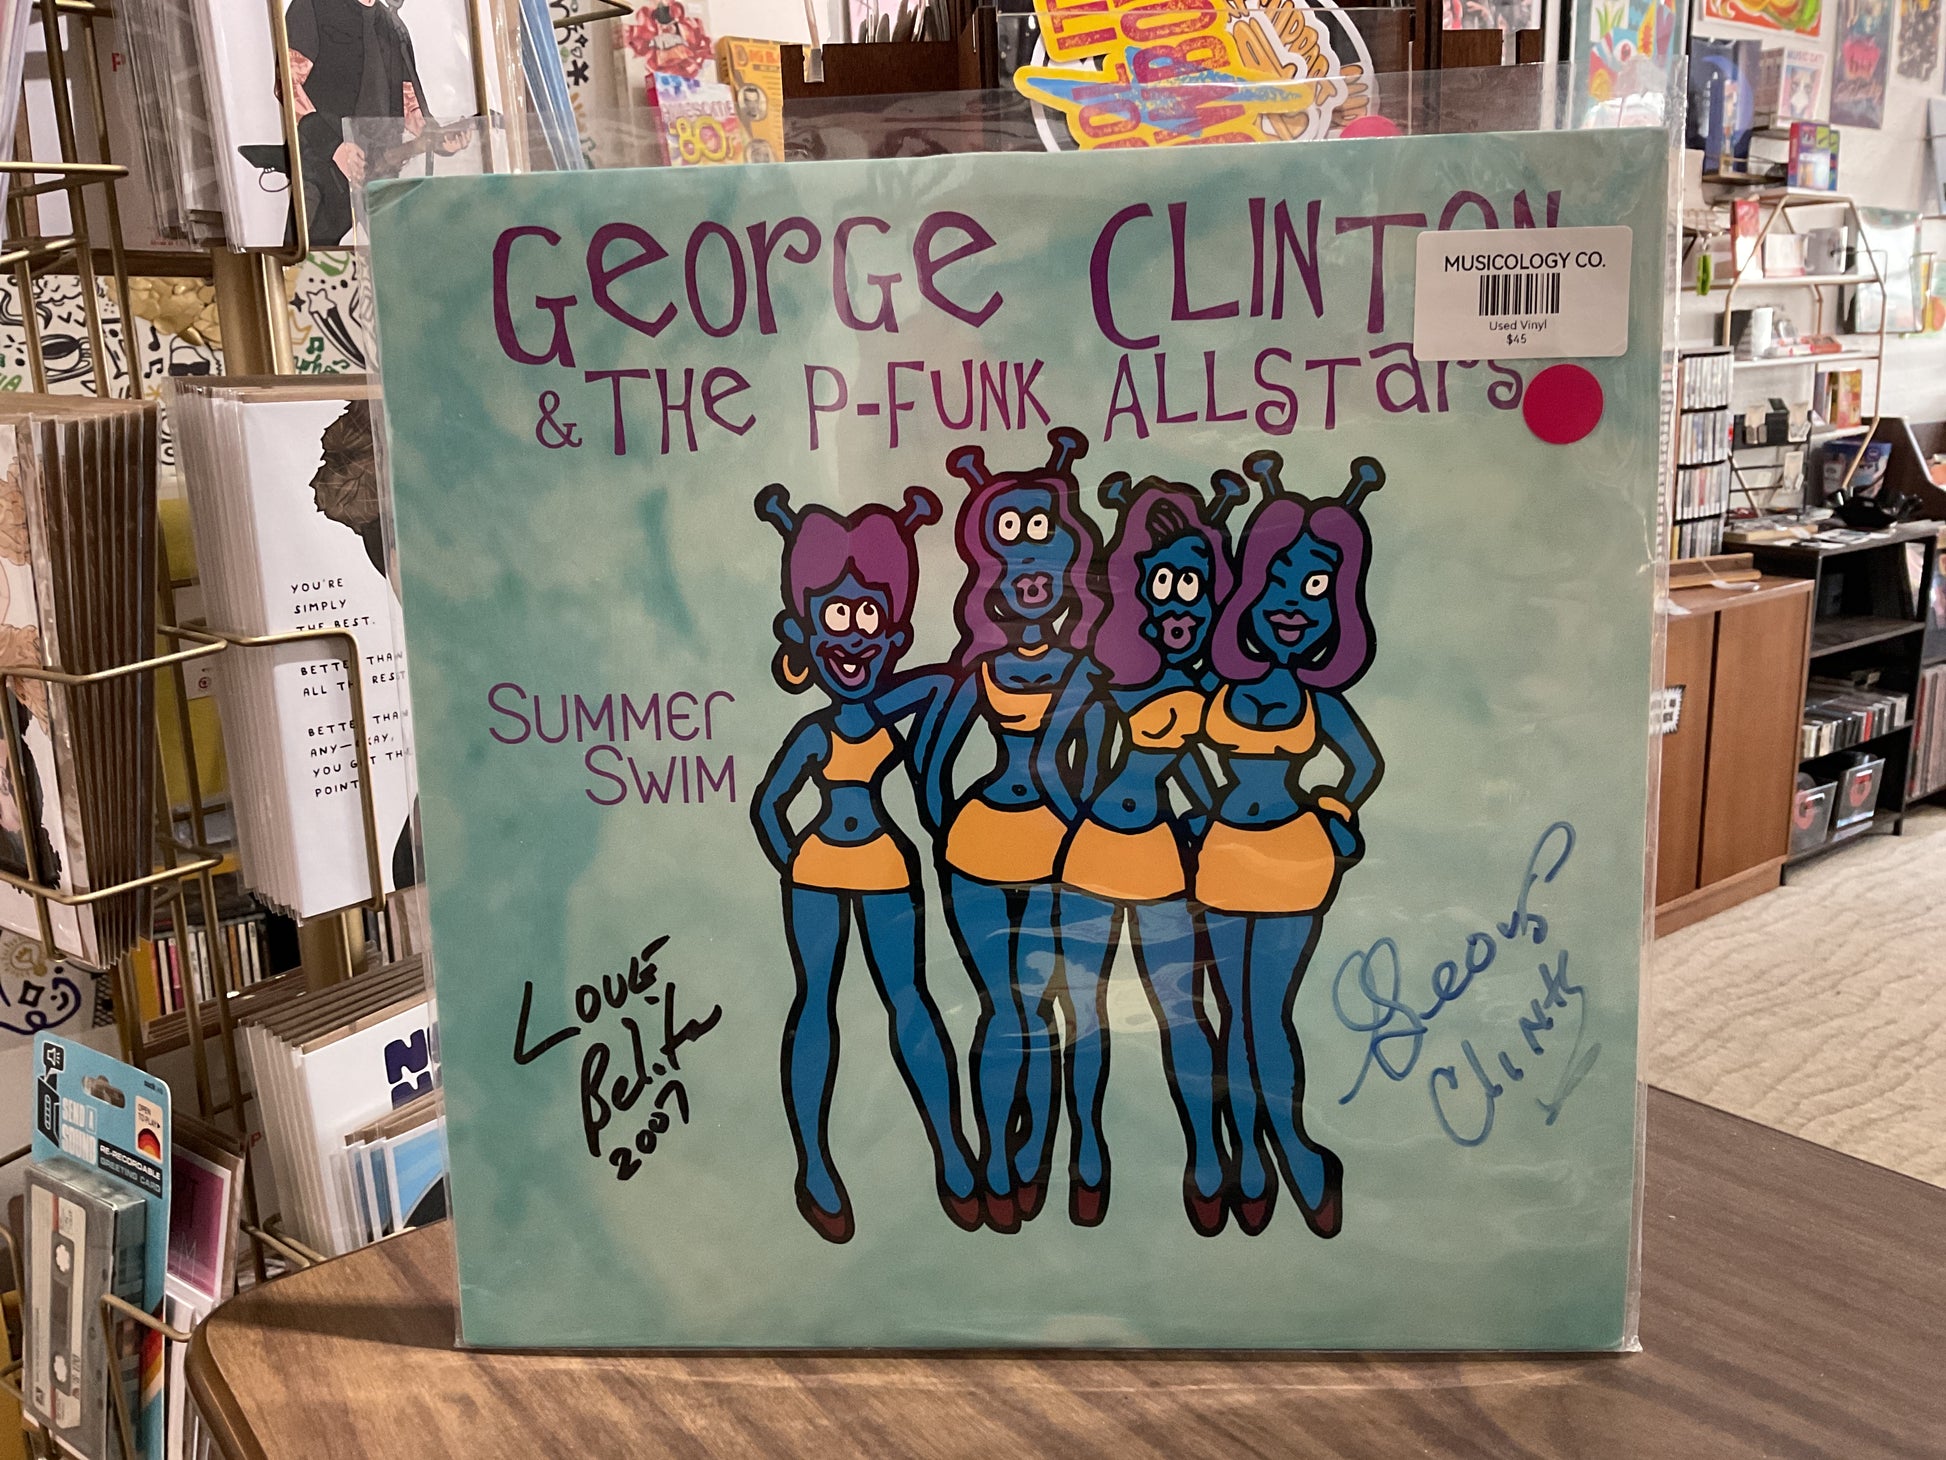 GEORGE CLINTON
& THE P-FUNK ALLSTARS
SUMMER
SWIM
MUSICOLOGY CO.
Used Vinyl
$45
LOVE
Belita
2007
George
Clinton
YOU'RE
SIMPLY
THE BEST.
BETTER THAN
ALL THE REST
BETTER THAN
ANY—
OKAY,
YOU GET THE
POINT
SEND A
SOUND
OPEN
TO PLAY
RE-RECORDABLE
GREETING CARD
AWESOME
80s
MUSIC CATS